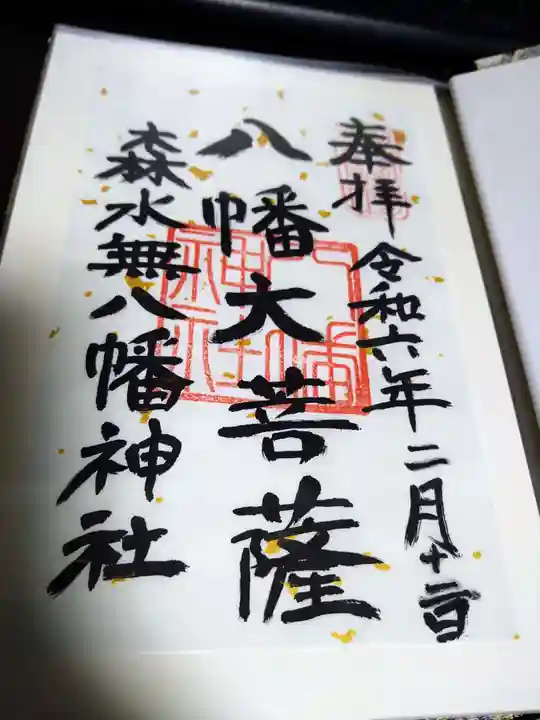 奉拝
令和六年二月十二日
八幡大菩薩
森水無八幡神社
八幡
神社